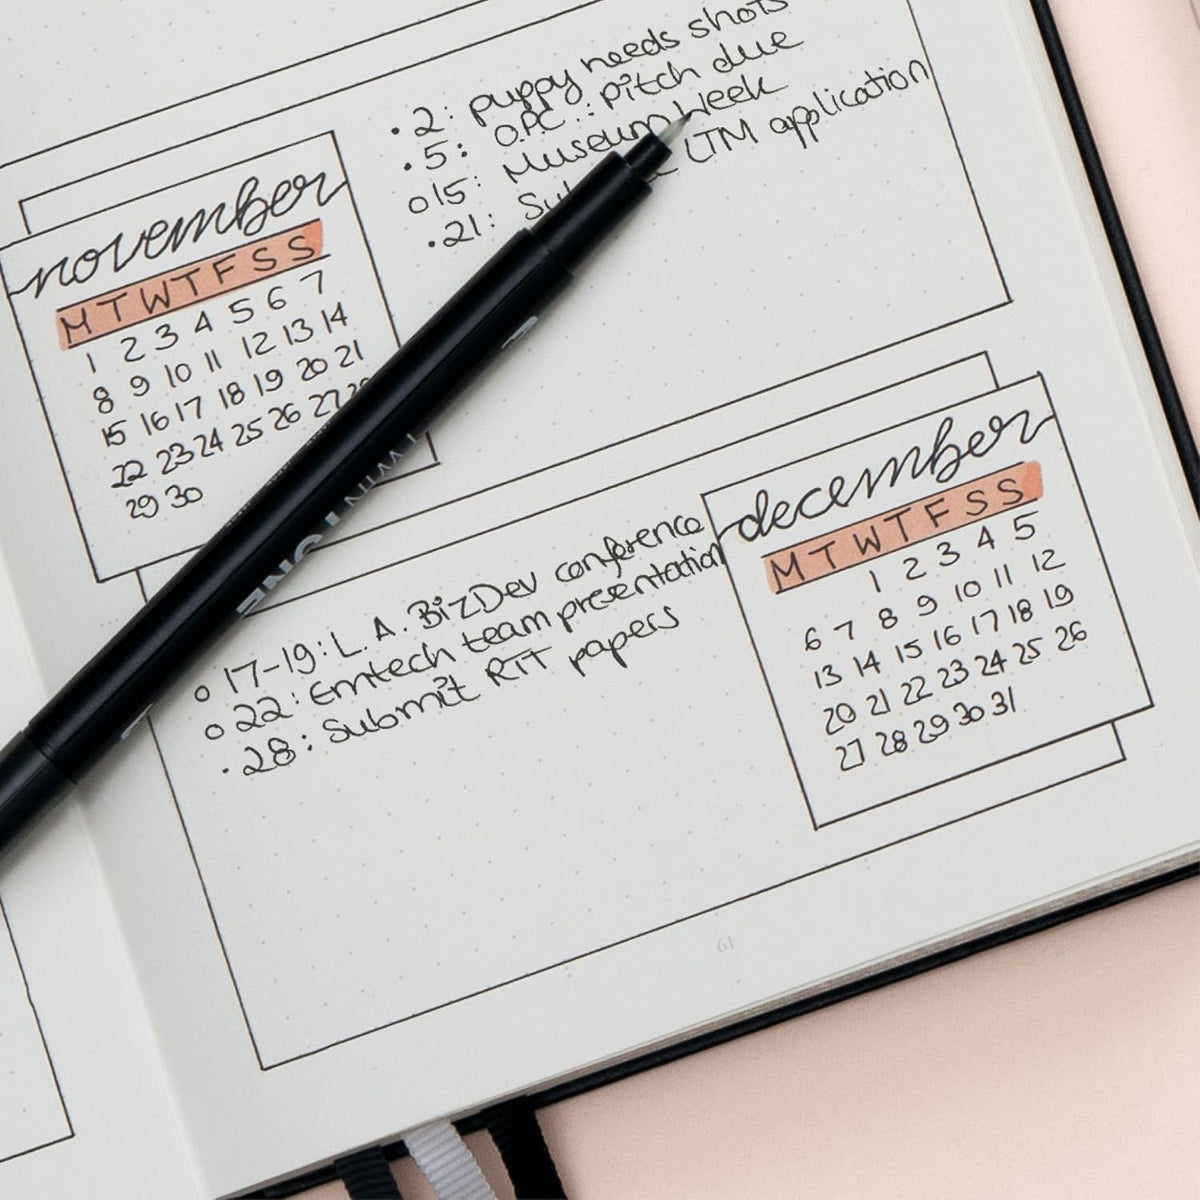 • 2: puppy needs shots
• 5: OPC: pitch due
o 15: Museum Week
• 21: LTM application
november
M T W T F S S
1 2 3 4 5 6 7
8 9 10 11 12 13 14
15 16 17 18 19 20 21
22 23 24 25 26 27
29 30
o 17-19: L.A. BizDev conference
o 22: Emtech team presentation
• 28: Submit RIT papers
december
M T W T F S S
1 2 3 4 5
6 7 8 9 10 11 12
13 14 15 16 17 18 19
20 21 22 23 24 25 26
27 28 29 30 31
61